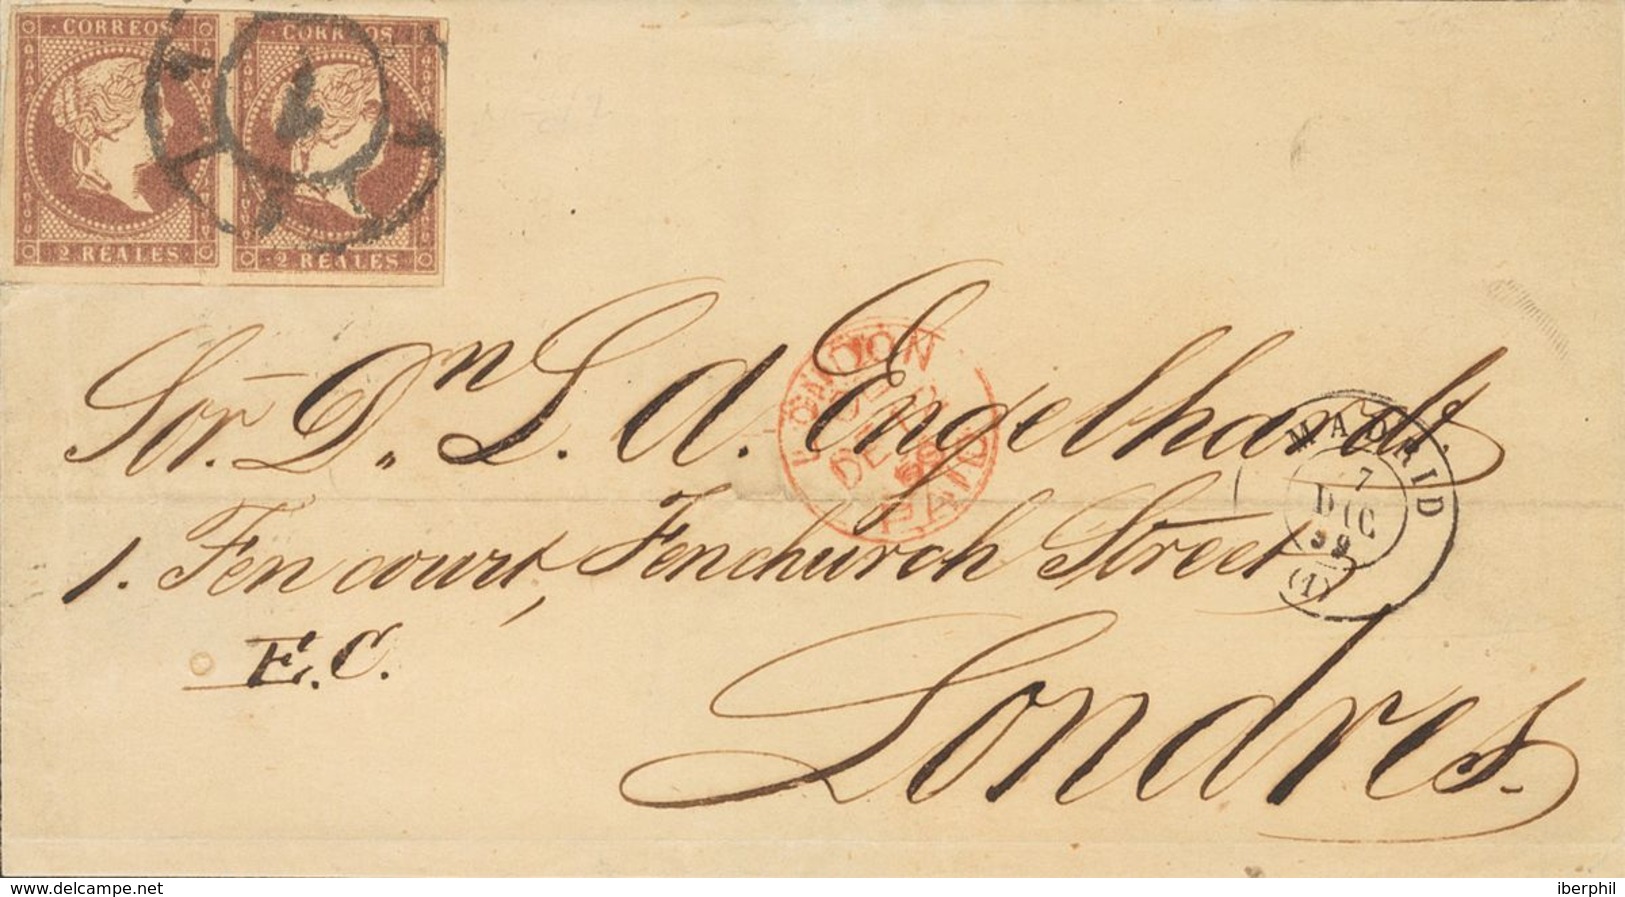 CORREOS CORREOS
2 REALES 2 REALES
Sor. Dn. L. A. Engelhardt.
LONDON
DE
PAID
MADRID
7
DIC
59
(1)
1. Fen court, Fenchurch Street
E.C.
Londres.
www.delcampe.net
iberphil